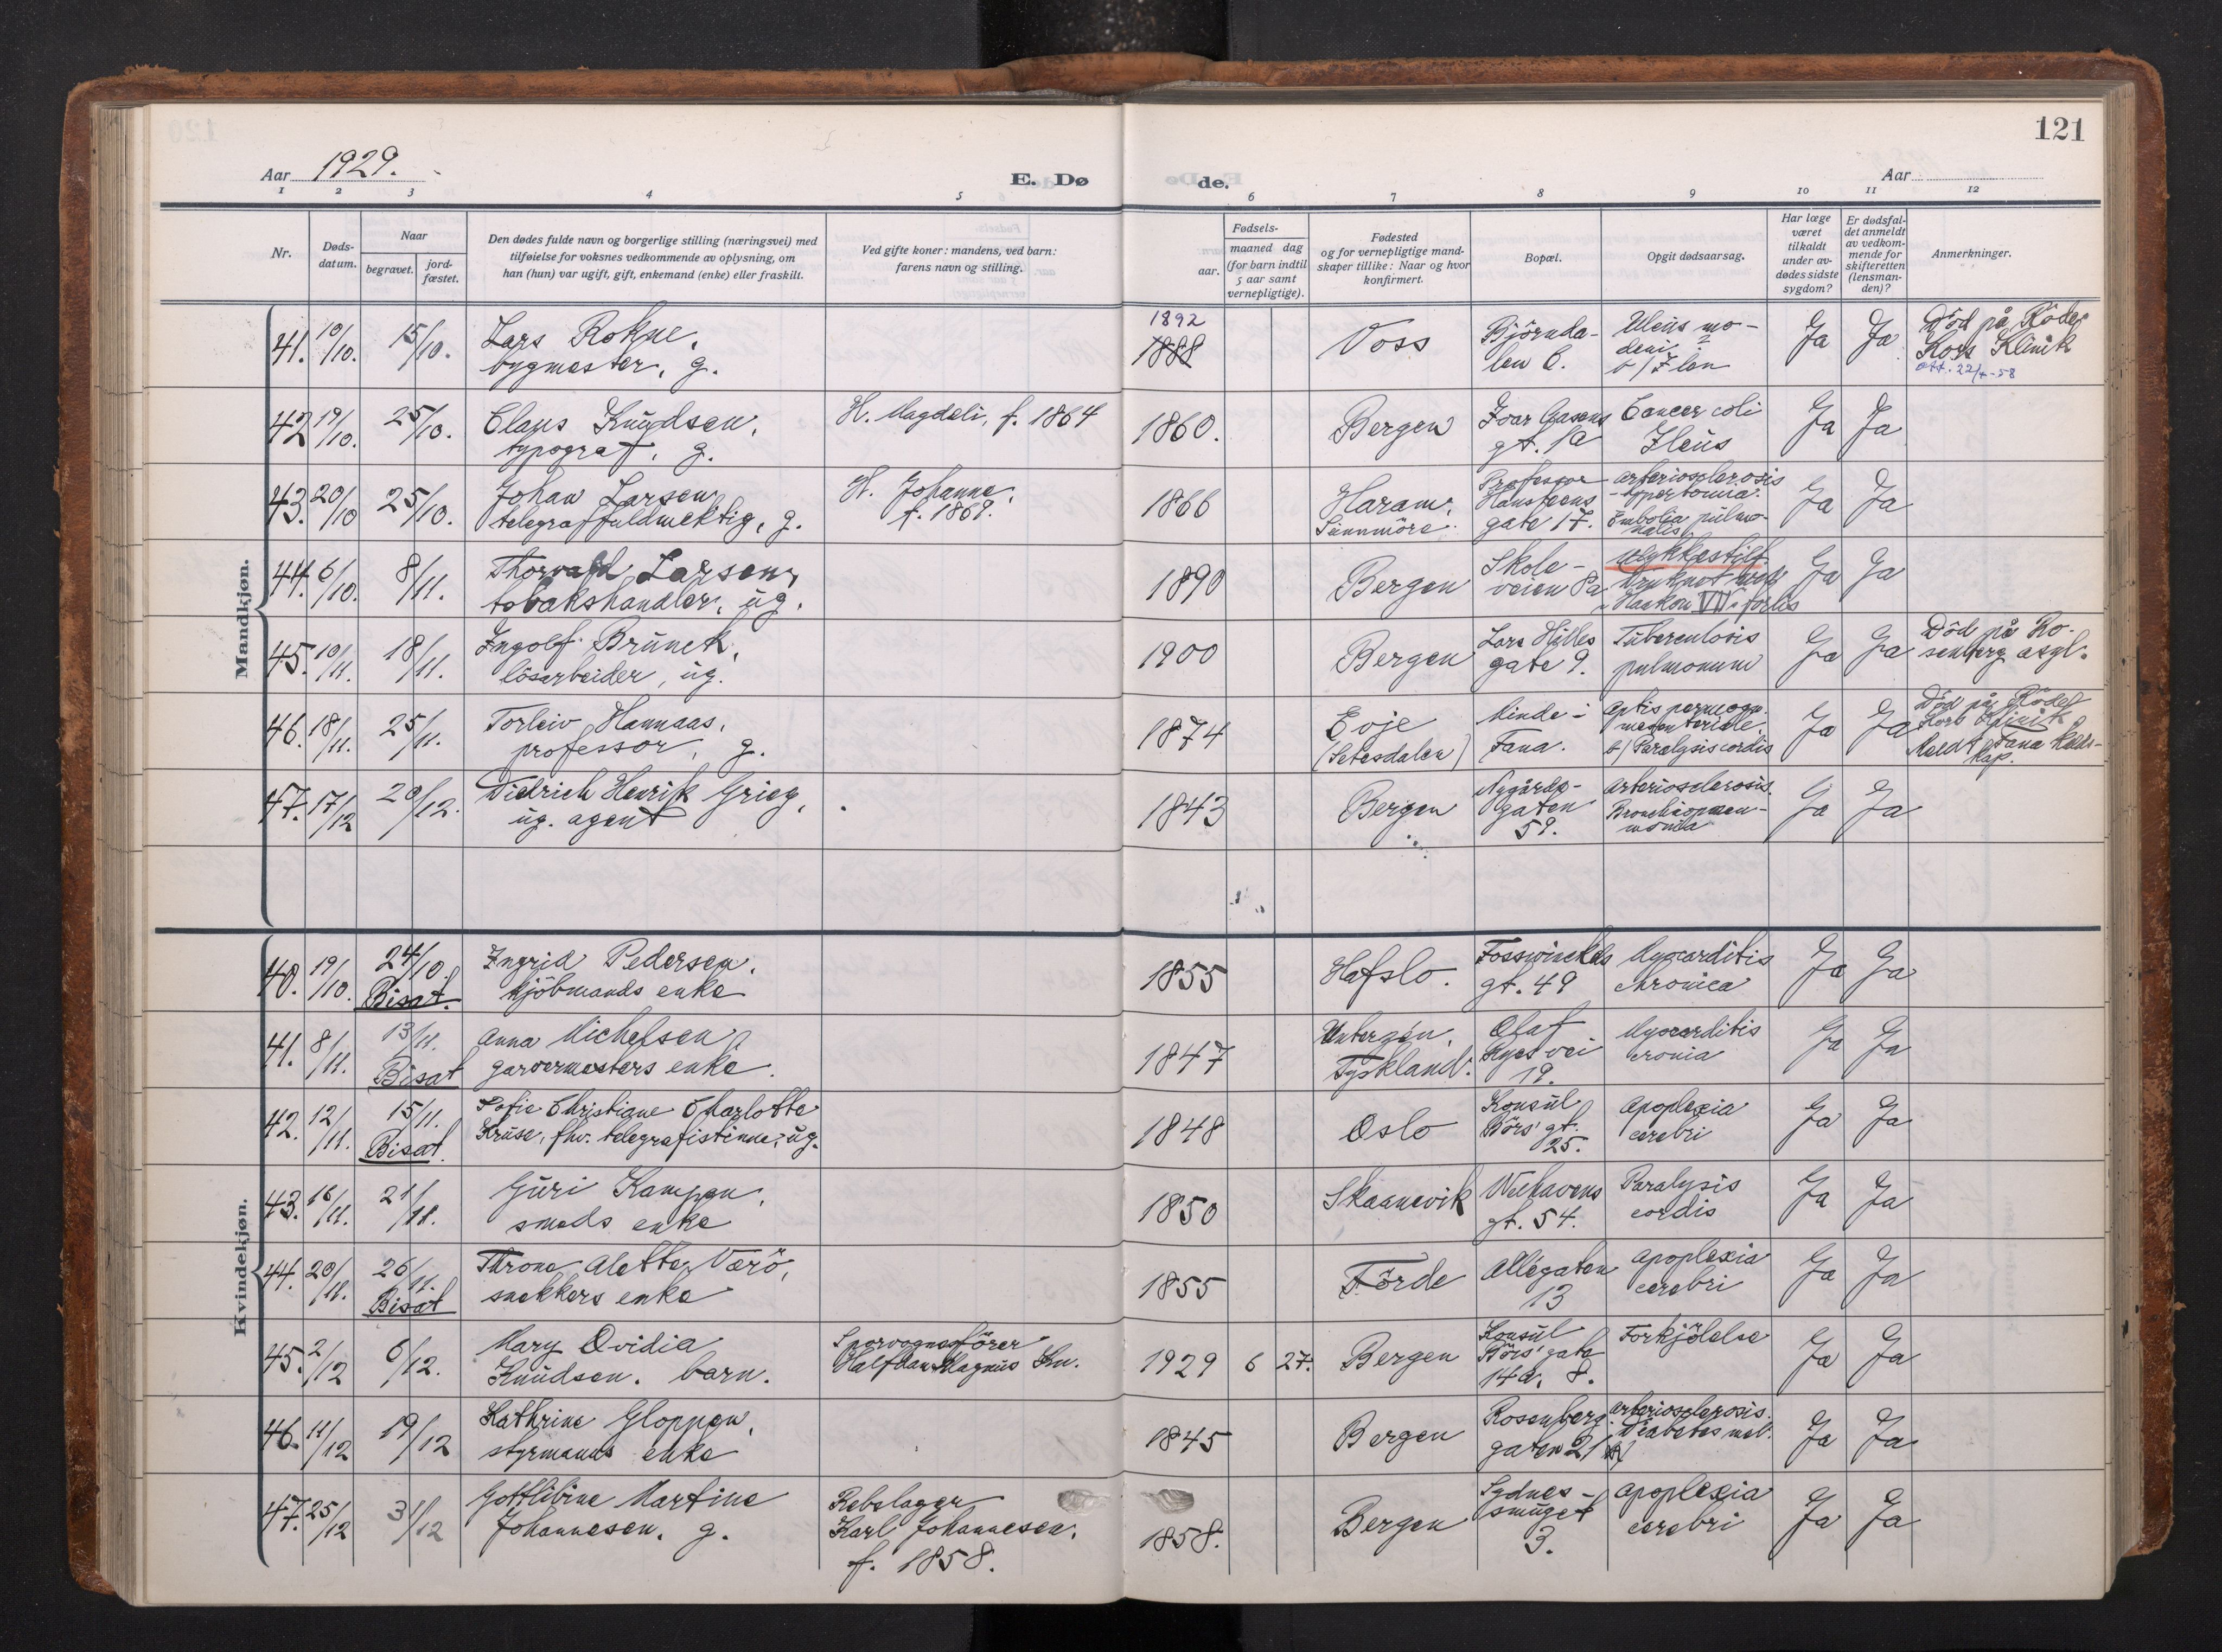 121
Aar 1929.
E. Dø
de.
Aar
1 2 3 4 5 6 7 8 9 10 11 12
Nr.
Døds-
datum.
Naar
begravet.
jord-
fæstet.
Den dødes fulde navn og borgerlige stilling (næringsvei) med
tilføielse for voksnes vedkommende av oplysning, om
han (hun) var ugift, gift, enkemand (enke) eller fraskilt.
Ved gifte koner: mandens, ved barn:
farens navn og stilling.
Fødsels-
aar.
maaned dag
(for barn indtil
5 aar samt
vernepligtige).
Fødested
og for vernepligtige mand-
skaper tillike: Naar og hvor
konfirmert.
Bopæl.
Opgit dødsaarsag.
Har læge
været
tilkaldt
under av-
dødes sidste
sygdom?
Er dødsfal-
det anmeldt
av vedkom-
mende for
skifteretten
(lensman-
den)?
Anmerkninger.
Mandkjøn.
41. 10/10. 15/10.
Lars Rokne,
bygmester, g.
1892
1888
Voss
Björnda-
len 6.
Ja Ja
Död på Röde
Kors Klinik
42 19/10. 25/10.
Claus Knudsen,
typograf, g.
H. Magdeli, f. 1864
1860.
Bergen
Ivar Aasens
gt. 1a
Cancer coli
Ileus
Ja Ja
43. 20/10 25/10.
Johan Larsen,
telegraffuldmektig, g.
H. Johanne,
f. 1869.
1866
Haram,
Sunnmöre.
Professor
Hansteens
gate 17.
arteriosclerosis
- hypertonia.
Embolia pulmo-
nalis
Ja Ja
44. 6/10. 8/11.
Thorvald Larsen,
tobakshandler, ug.
1890
Bergen
Skole-
veien 8a
Ulykkestilf.
Druknet ved
"Haakon VII"s forlis
Ja Ja
45. 10/11. 18/11.
Ingolf Brunck,
lösarbeider, ug.
1900
Bergen
Lars Hilles
gate 9.
Tuberculosis
pulmonum
Ja Ja
Död på Ro-
senberg asyl.
46. 18/11. 25/11.
Torleiv Hannaas,
professor, g.
1874
Evje
(Setesdalen)
Minde i
Fana.
b/ Paralysis cordis
Ja Ja
Död på Röde
Kors Klinik
Meldt Fana
47. 17/12 20/12.
Diedrich Henrik Grieg,
ug. agent
1843
Bergen
Nygårds-
gaten
59.
arteriosclerosis.
Bronchiopneu-
monia
Ja Ja
Kvindekjøn.
40. 19/10. 24/10.
Bisat.
Ingrid Pedersen,
kjöbmands enke
1855
Hafslo.
Fosswinckels
gt. 49
Myocarditis
chronica
Ja Ja
41. 8/11. 13/11.
Bisat
Anna Michelsen,
garvermesters enke.
1847
Tyskland.
Olaf
Ryes vei
19.
Myocarditis
cronia
Ja Ja
42. 12/11. 15/11.
Bisat.
Sofie Christiane Charlotte
Kruse, fhv. telegrafistinne, ug.
1848
Oslo
Konsul
Börs' gt.
25.
apoplexia
cerebri
Ja Ja
43. 16/11. 21/11.
Guri Kampen,
smeds enke
1850
Skaanevik
Welhavens
gt. 54.
Paralysis
cordis
Ja Ja
44. 20/11. 26/11.
Bisat
Throne Alette Værö,
snekkers enke
1855
Förde
Allegaten
13
apoplexia
cerebri
Ja Ja
45. 2/12 6/12.
Mary Ovidia
Knudsen. barn.
Sporvognsförer
Halfdan Magnus Kn.
1929 6 27.
Bergen
Konsul
Börs' gate
14a, 8.
Forkjölelse
Ja Ja
46. 11/12 19/12
Kathrine Gloppen,
styrmanns enke
1845
Bergen
Rosenberg-
gaten 21
arteriosclerosis.
Diabetes mel.
Ja Ja
47. 25/12 31/12
Gottlibine Martine
Johannesen, g.
Rebslager
Karl Johannesen,
f. 1858.
1858.
Bergen
Sydnes-
smuget
3.
apoplexia
cerebri
Ja Ja